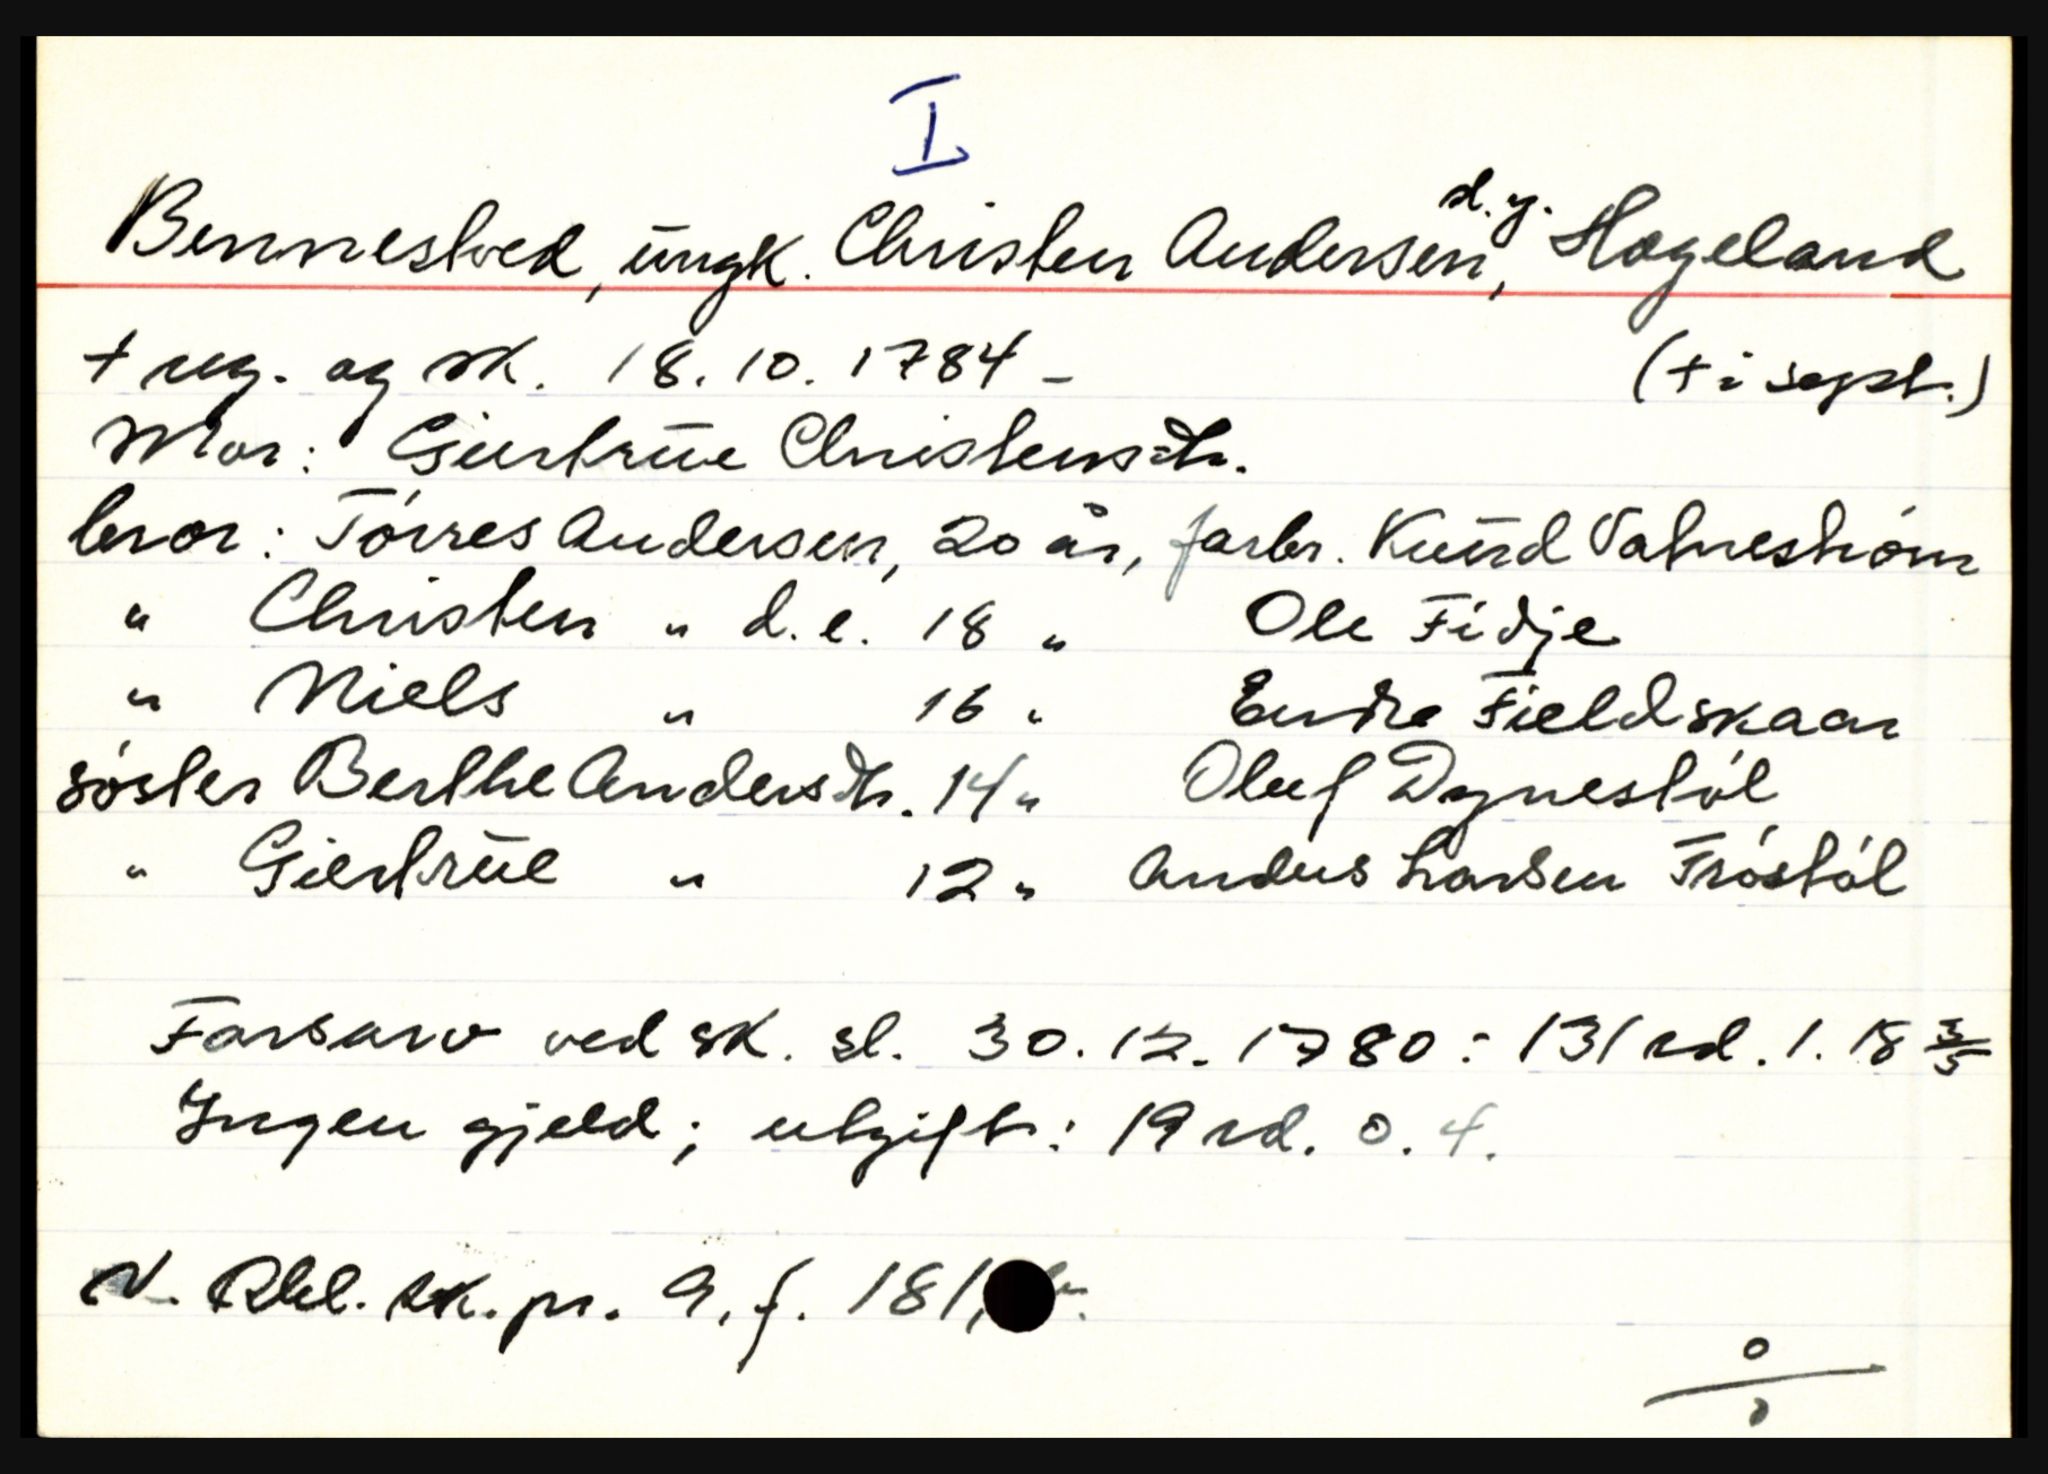 I
Bennestved, ungk. Christen Andersen, d.y. Hageland
+ reg. og sk. 18.10.1784 - (+ i sept.)
Mor: Giertrue Christensdtr.
bror: Tórres Andersen, 20 år, farbr. Knud Valnestróm
" Christen " d.e. 18 " Ole Fidje
" Niels " 16 " Endre Fieldskaar
sóster Berthe Andersdtr. 14 " Oluf Dynestól
" Giertrue " 12 " Anders Larsen Fróstól
Farsarv ved sk. sl. 30.12.1780: 131 rd. 1. 18 3/5
Ingen gjeld; utgift: 19 rd. 0. 4.
N. Rbl. sk. pr. 9, f. 181,
0